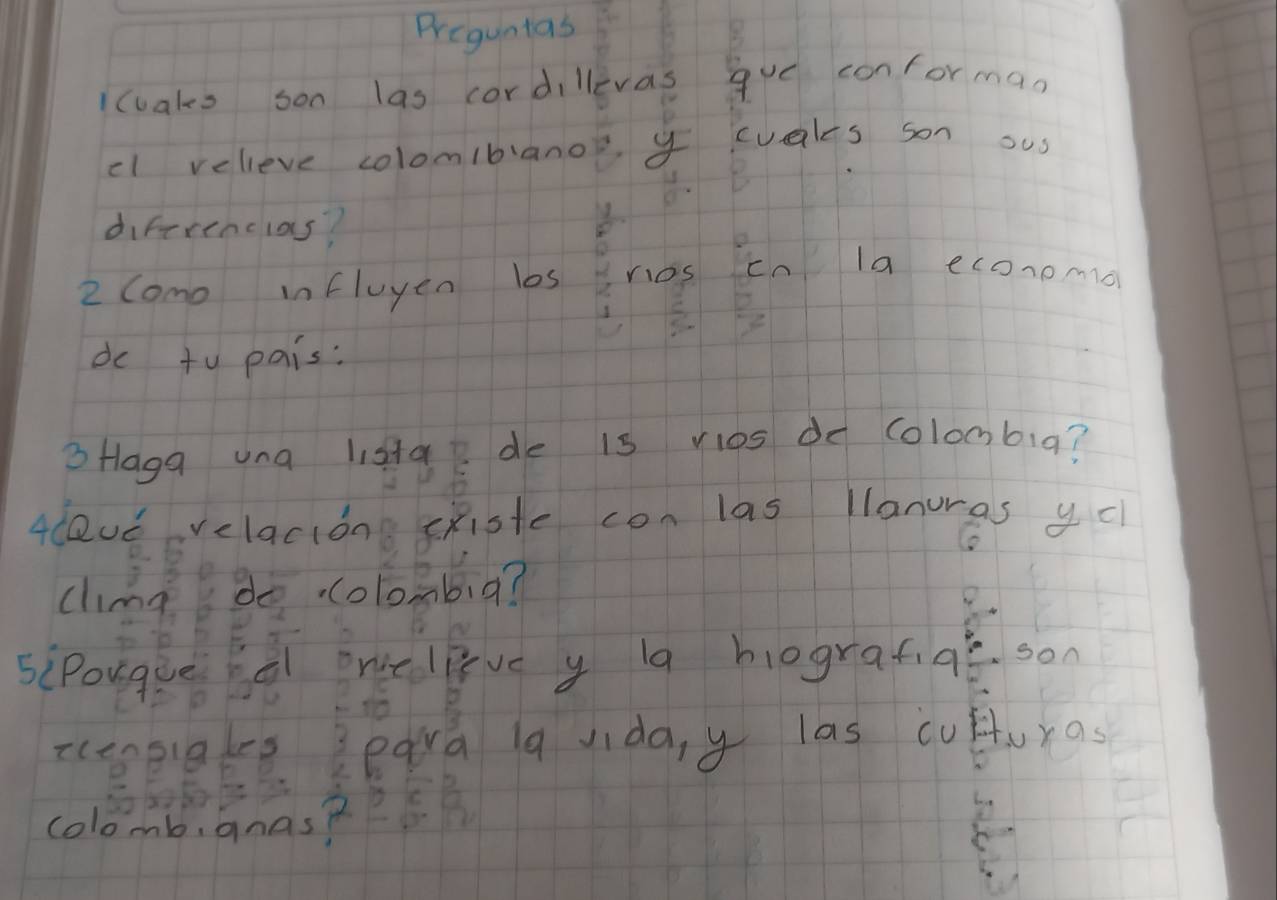 Preguntas
1 Cuales son las cordilleras que conforman
el relieve colombiano? y cuales son sus
diferencias?
2 Como influyen los rios en la economia
de tu país:
3 Haga una lista de 15 rios de Colombia?
4 ¿Qué relación existe con las llanuras y el
clima de colombia?
5 ¿Porque el relieve y la hiografia son
para la vida, y las culturas
colombianas?